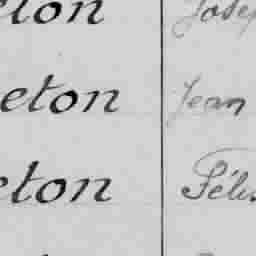 eton Josep
eton Jean
eton Féli